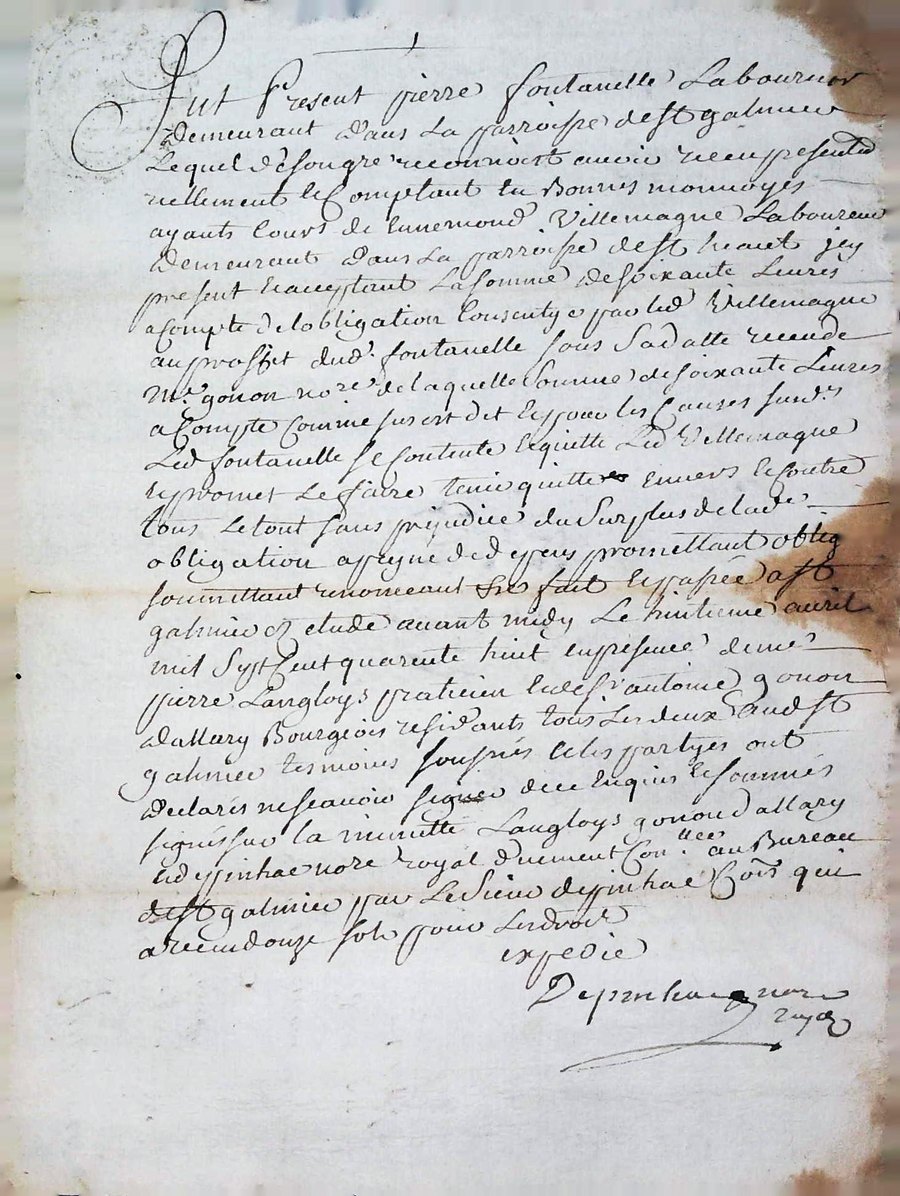 Fut Present pierre fontanelle Laboureur
demeurant dans La parroisse de st galmier
Lequel de son gre reconnoist avoir receu presentem
reellement et Comptant en Bonnes monnoyes
ayants Cours de Ennemond Villemagne Laboureur
demeurant dans La parroisse de st heant jcy
present et acceptant La somme de soixante Livres
a Compte de lobligation Consentye par led Villemagne
au proffit dud. fontanelle sous sa datte receüe
Me. gonon nore. de laquelle somme de soixante Livres
a Compte Comme sus est dit et pour les Causes susd.s
Led fontanelle se Contente et quitte Led Villemagne
et promet Le faire tenir quitte envers et Contre
tous Le tout sans prejudice du Surplus de lade
obligation a peyne de depens promettant oblig
soumettant renonceant fait et passée a st
galmier etude avant midy Le huitieme auril
mil Sept Cent quarente huit en presence de me
pierre Langloys praticien et de sr antoine gonon
dallary Bourgeois residants tous Les deux aud st
galmier temoins soussnés et les partyes ont
declarés ne scavoir signer de ce Enquis et sommés
signés sur la minutte Langloys gonon dallary
et despinhac nore royal duement Con.llee au Bureau
de st galmier par Le Sieur despinhac Coms qui
a receu douze sols pour Les droits
expedie
Depinhac nore
royal